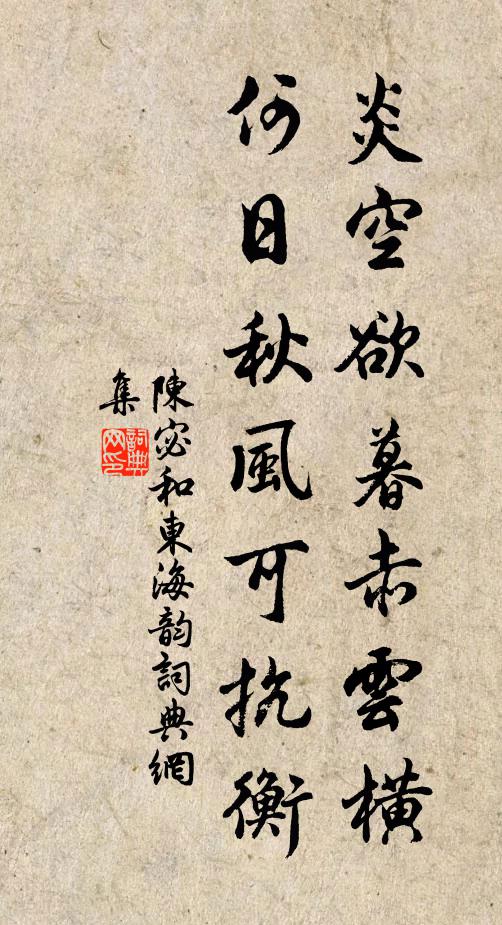 炎空欲暮赤雲橫
何日秋風可抗衡
陳宓和東海韵詞典網
集
詞典
网印